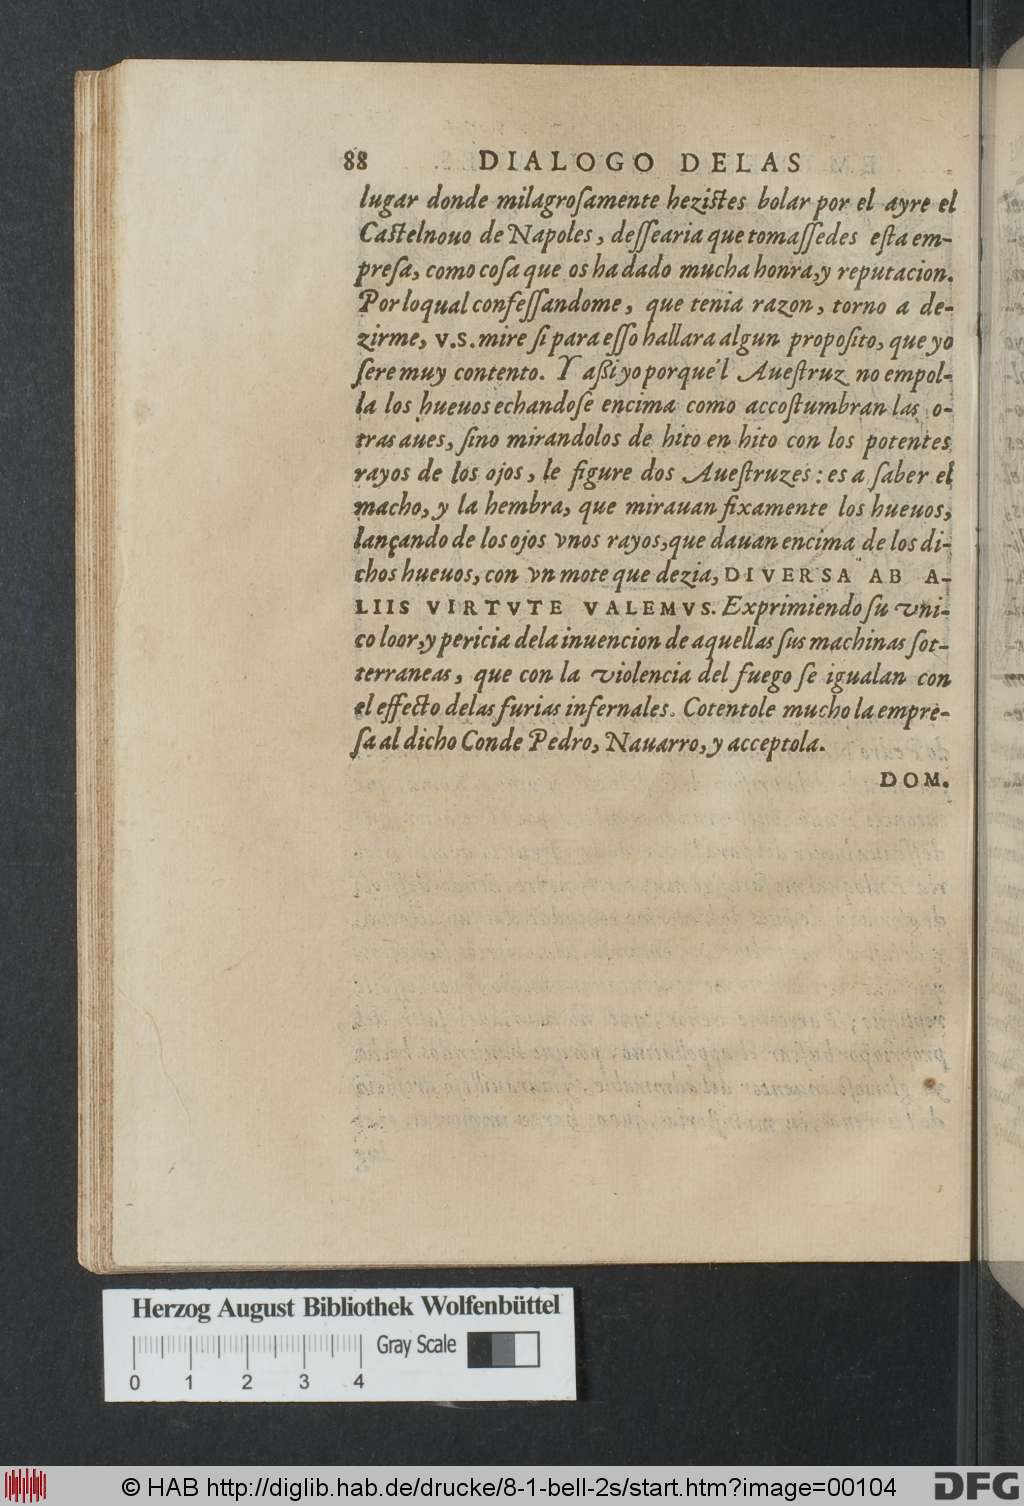 88 DIALOGO DELAS
lugar donde milagroſamente heziſtes bolar por el ayre el
Caſtelnouo de Napoles, deſſearia que tomaſſedes eſta em-
preſa, como coſa que os ha dado mucha honra, y reputacion.
Por loqual confeſſandome, que tenia razon, torno a de-
zirme, V.S. mire ſi para eſſo hallara algun propoſito, que yo
ſere muy contento. Y aßi yo porqué l Aueſtruz no empol-
la los hueuos echandoſe encima como accoſtumbran las o-
tras aues, ſino mirandolos de hito en hito con los potentes
rayos de los ojos, le figure dos Aueſtruzes: es a ſaber el
macho, y la hembra, que mirauan fixamente los hueuos,
lançando de los ojos vnos rayos, que dauan encima de los di-
chos hueuos, con vn mote que dezia, DIVERSA AB A-
LIIS VIRTVTE VALEMVS. Exprimiendo ſu vni-
co loor, y pericia dela inuencion de aquellas ſus machinas ſot-
terraneas, que con la violencia del fuego ſe igualan con
el effecto delas furias infernales. Cotentole mucho la empre-
ſa al dicho Conde Pedro, Nauarro, y acceptola.
DOM.
Herzog August Bibliothek Wolfenbüttel
Gray Scale
0 1 2 3 4
© HAB http://diglib.hab.de/drucke/8-1-bell-2s/start.htm?image=00104
DFG